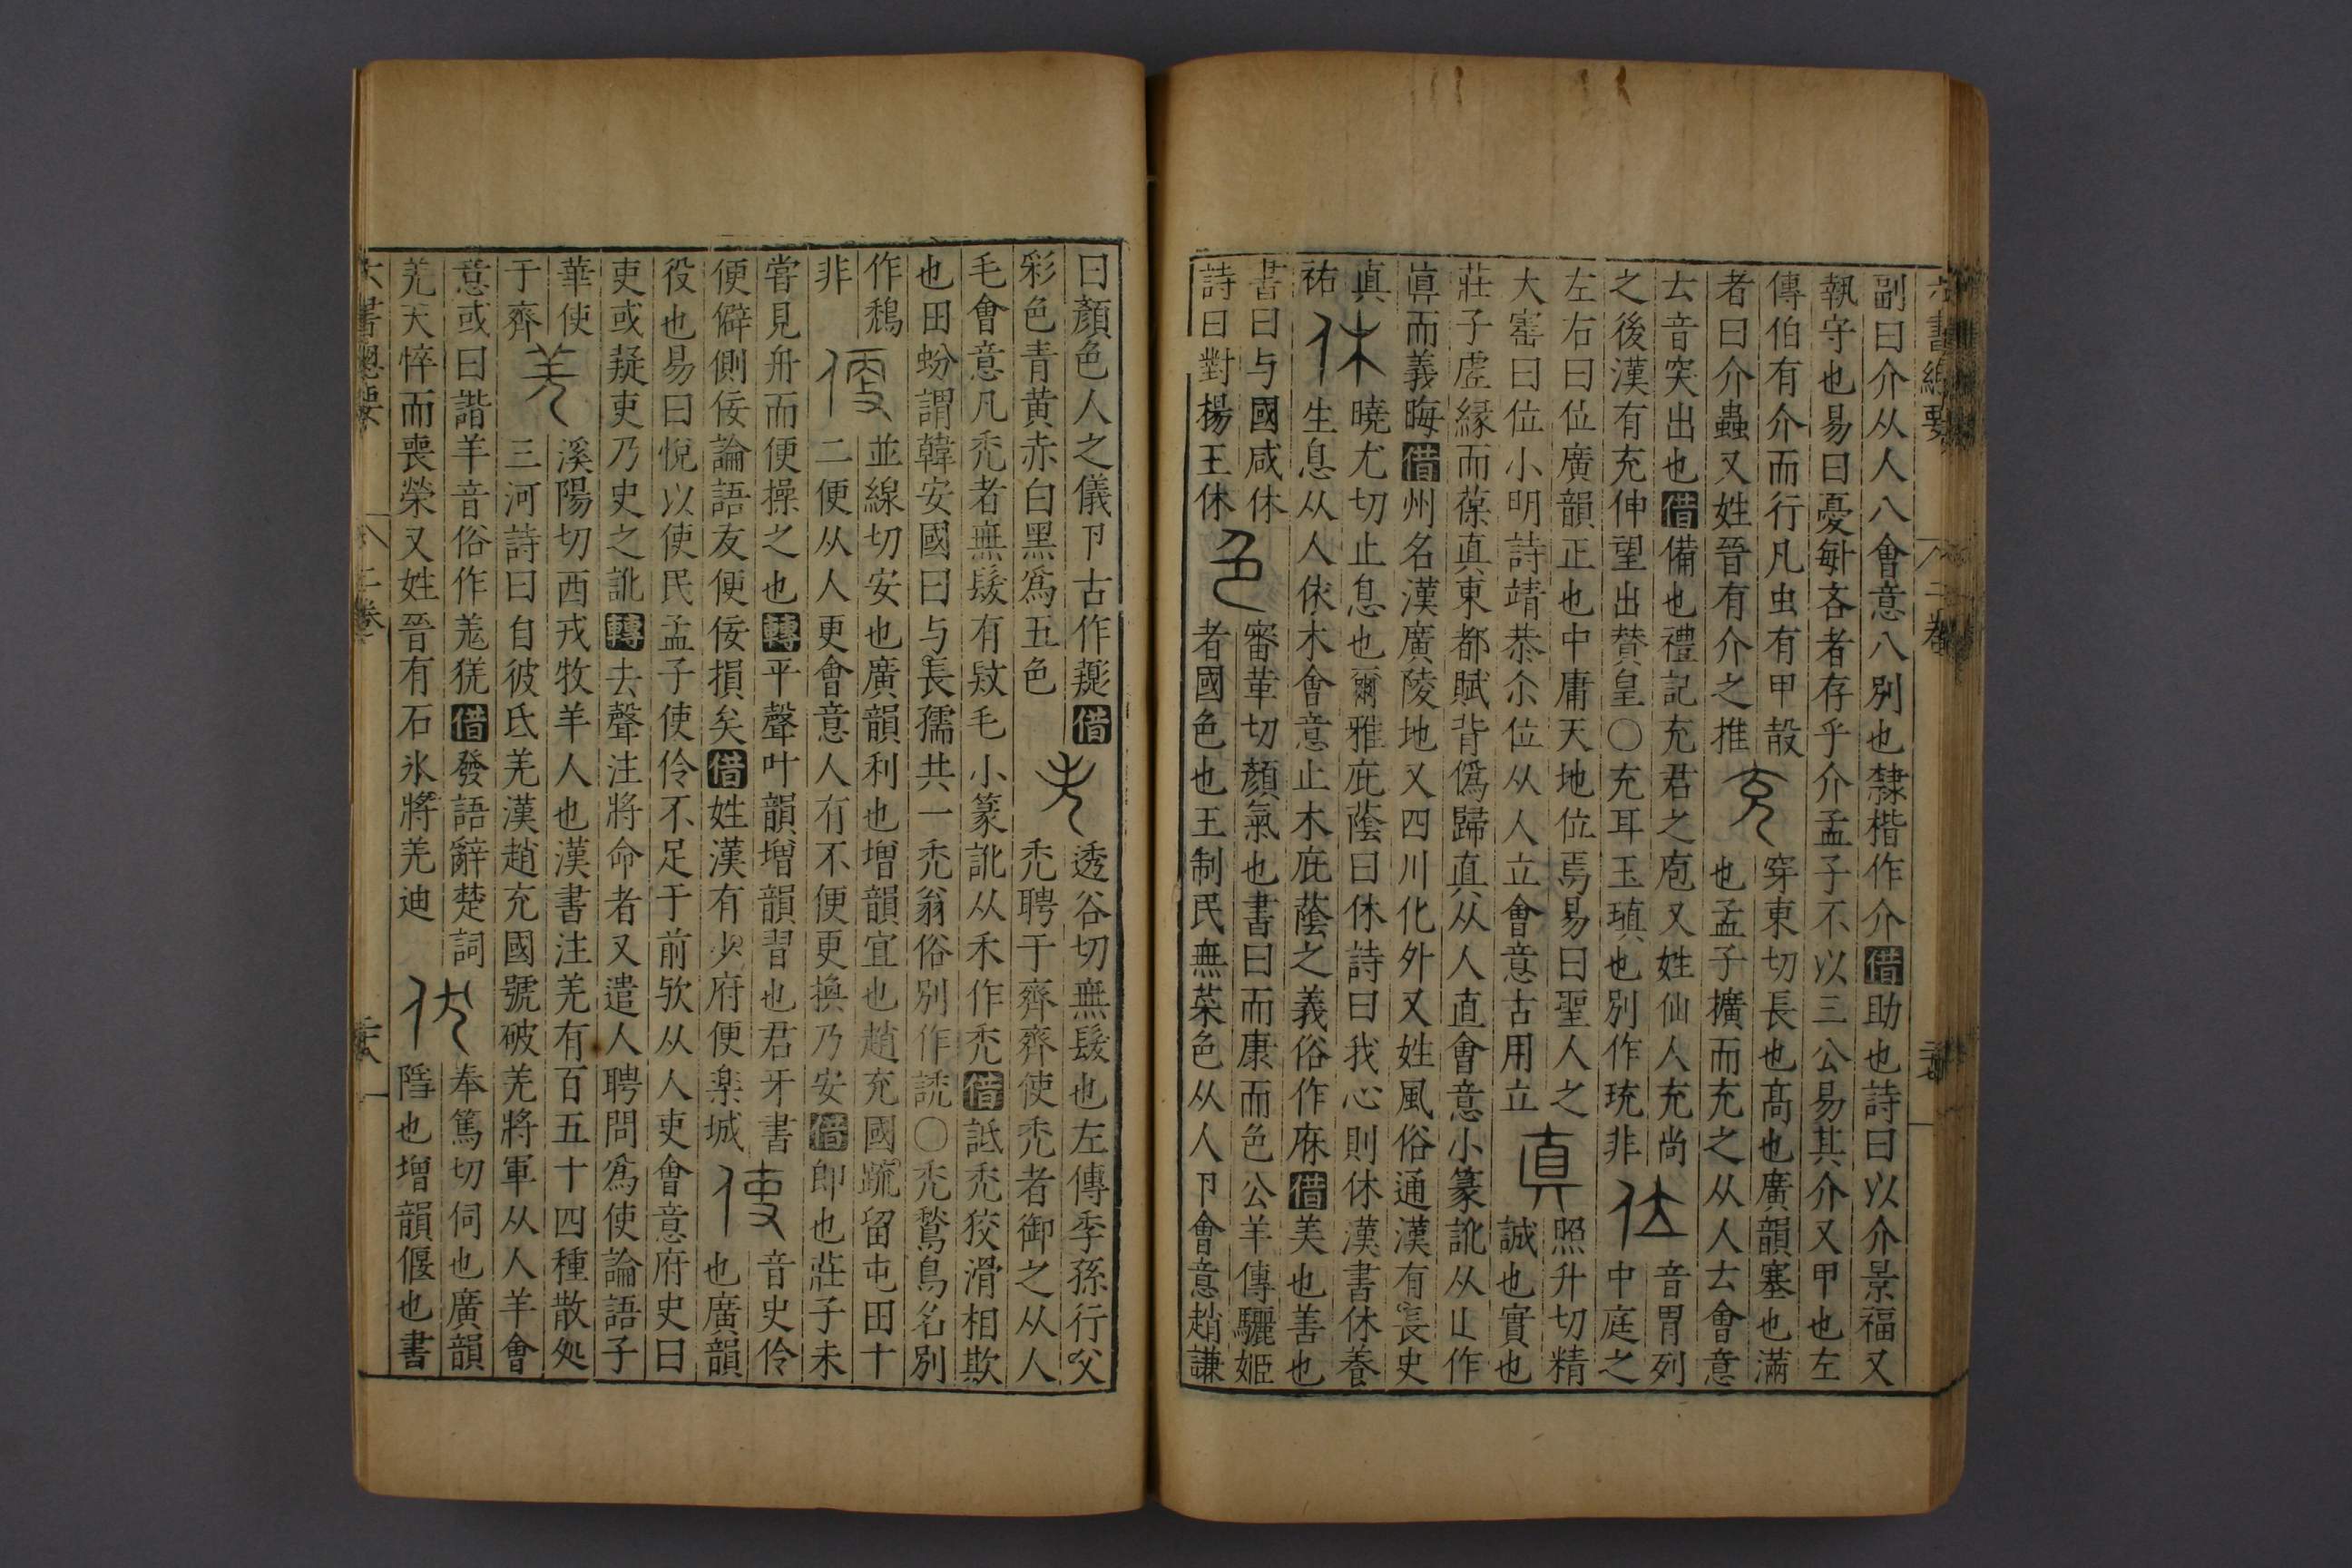 六書總要 二卷
副曰介从人八會意八別也隸楷作介借助也詩曰以介景福又
執守也易曰憂每吝者存乎介孟子不以三公易其介又甲也左
傳伯有介而行凡虫有甲殻
者曰介蟲又姓晉有介之推
充
穿東切長也髙也廣韻塞也滿
也孟子擴而充之从人𠫓會意
𠫓音突出也借備也禮記充君之庖又姓仙人充尚
之後漢有充伸望出贊皇〇充耳玉瑱也別作琉非
位
音胃列
中庭之
左右曰位廣韻正也中庸天地位焉易曰聖人之
大寳曰位小明詩靖恭尒位从人立會意古用立
真
照升切精
誠也實也
莊子虛緣而葆真東都賦背僞歸真从人直會意小篆訛从𠃊作
眞而義晦借州名漢廣陵地又四川化外又姓風俗通漢有長史
真
祐
休
曉尤切止息也爾雅庇蔭曰休詩曰我心則休漢書休養
生息从人依木會意止木庇蔭之義俗作庥借美也善也
書曰与國咸休
詩曰對揚王休
色
審葦切顏氣也書曰而康而色公羊傳驪姬
者國色也王制民無菜色从人卪會意趙謙
曰顏色人之儀卪古作𩒖借
彩色青黄赤白黑爲五色
禿
透谷切無髮也左傳季孫行父
禿聘于齊齊使禿者御之从人
毛會意凡禿者無髮有㱿毛小篆訛从禾作禿借詆禿狡滑相欺
也田蚡謂韓安國曰与長孺共一禿翁俗別作𧧼〇禿鶖鳥名別
作鵚
非
便
並線切安也廣韻利也增韻宜也趙充國䟽留屯田十
二便从人更會意人有不便更換乃安借即也莊子未
嘗見舟而便操之也轉平聲叶韻增韻習也君牙書
便僻側佞論語友便佞損矣借姓漢有少府便樂城
使
音史伶
也廣韻
役也易曰悅以使民孟子使伶不足于前欤从人吏會意府史曰
吏或疑吏乃史之訛轉去聲注將命者又遣人聘問爲使論語子
華使
于齊
羌
溪陽切西戎牧羊人也漢書注羌有百五十四種散処
三河詩曰自彼氐羌漢趙充國號破羌將軍从人羊會
意或曰諧羊音俗作羗猐借發語辭楚詞
羌夭悴而喪榮又姓晉有石氷將羌迪
伏
奉篤切伺也廣韻
隱也增韻偃也書
六書總要 二卷 六